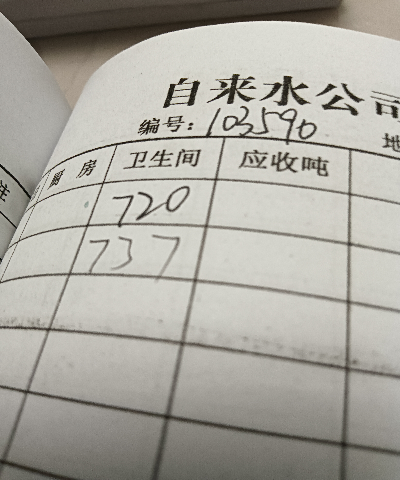 自来水公司
编号:103590 地
厨房 卫生间 应收吨
720
737